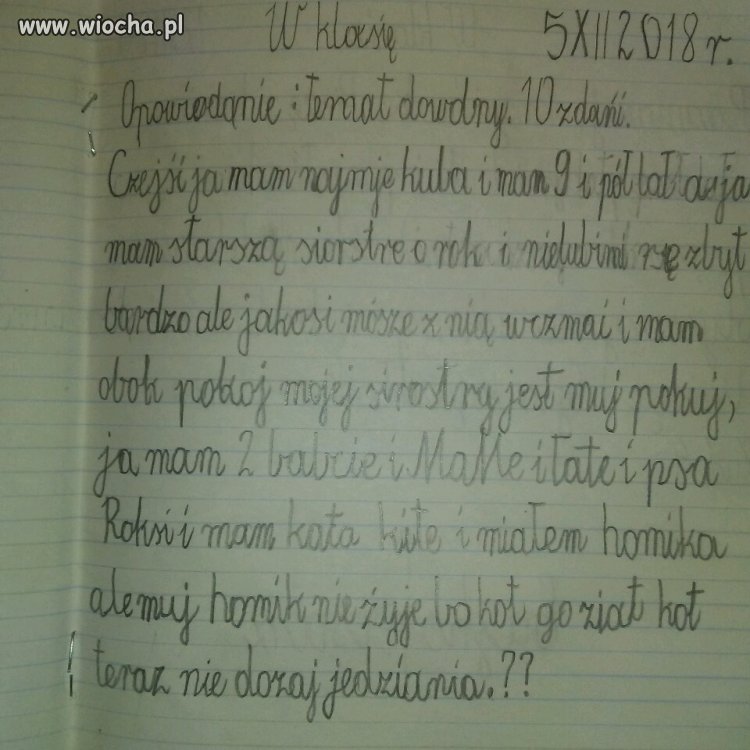 www.wiocha.pl
W klasię 5XII2018r.
Opowiedanie: temat dowolny. 10 zdań.
Czejśi ja mam najmje kuba i mam 9 i pół lat a ja
mam starszą siorstre o rok i nielubimi się zbyt
bardzo ale jakosi mósze z nią wrzmai i mam
obok pokoj mojej sirostry jest muj pokuj,
ja mam 2 babcie i MaMe i tate i psa
Roksi i mam kata kite i miałem homika
ale muj homik nie żyje bo kot go ziat kot
teraz nie dozaj jedziania.??